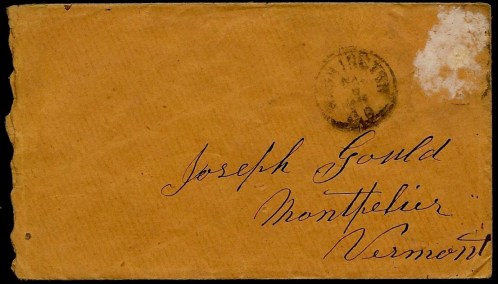 Joseph Gould
Montpelier
Vermont